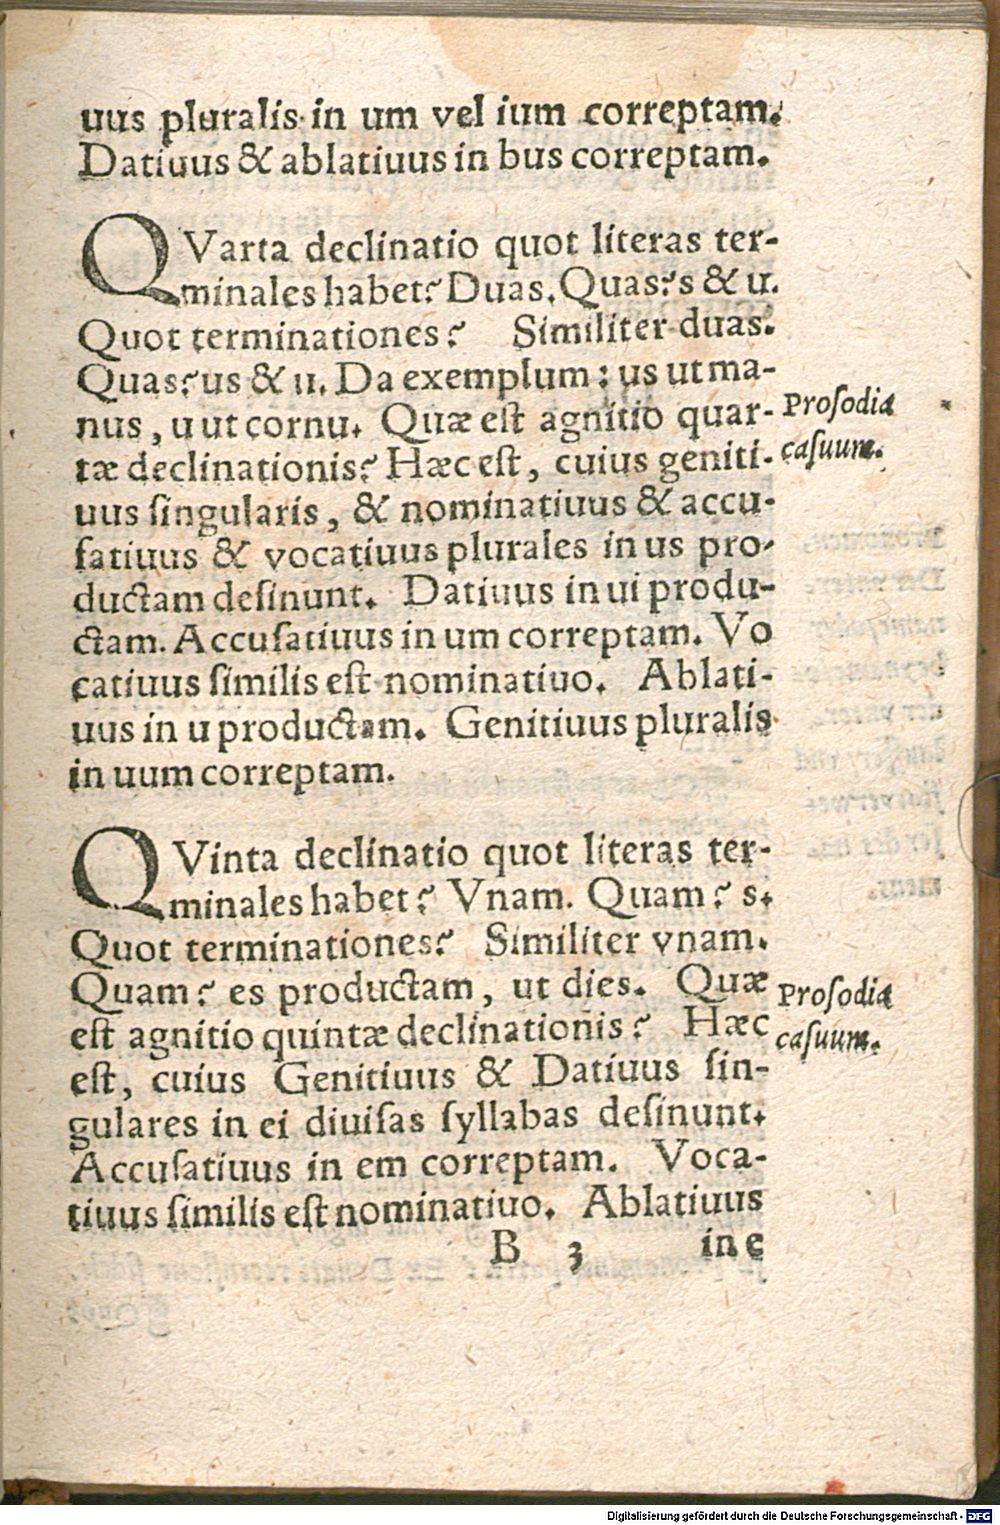 uus pluralis in um vel ium correptam.
Datiuus & ablatiuus in bus correptam.
QVarta declinatio quot literas ter-
minales habet? Duas. Quas? s & u.
Quot terminationes? Similiter duas.
Quas? us & u. Da exemplum: us ut ma-
nus, u ut cornu. Quæ est agnitio quar-
tæ declinationis? Hæc est, cuius geniti-
uus singularis, & nominatiuus & accu-
satiuus & vocatiuus plurales in us pro-
ductam desinunt. Datiuus in ui produ-
ctam. Accusatiuus in um correptam. Vo
catiuus similis est nominatiuo. Ablati-
uus in u productam. Genitiuus pluralis
in uum correptam.
Prosodia
casuum.
QVinta declinatio quot literas ter-
minales habet? Vnam. Quam? s.
Quot terminationes? Similiter vnam.
Quam? es productam, ut dies. Quæ
est agnitio quintæ declinationis? Hæc
est, cuius Genitiuus & Datiuus sin-
gulares in ei diuisas syllabas desinunt.
Accusatiuus in em correptam. Voca-
tiuus similis est nominatiuo. Ablatiuus
Prosodia
casuum.
B 3 in e
Digitalisierung gefördert durch die Deutsche Forschungsgemeinschaft - DFG